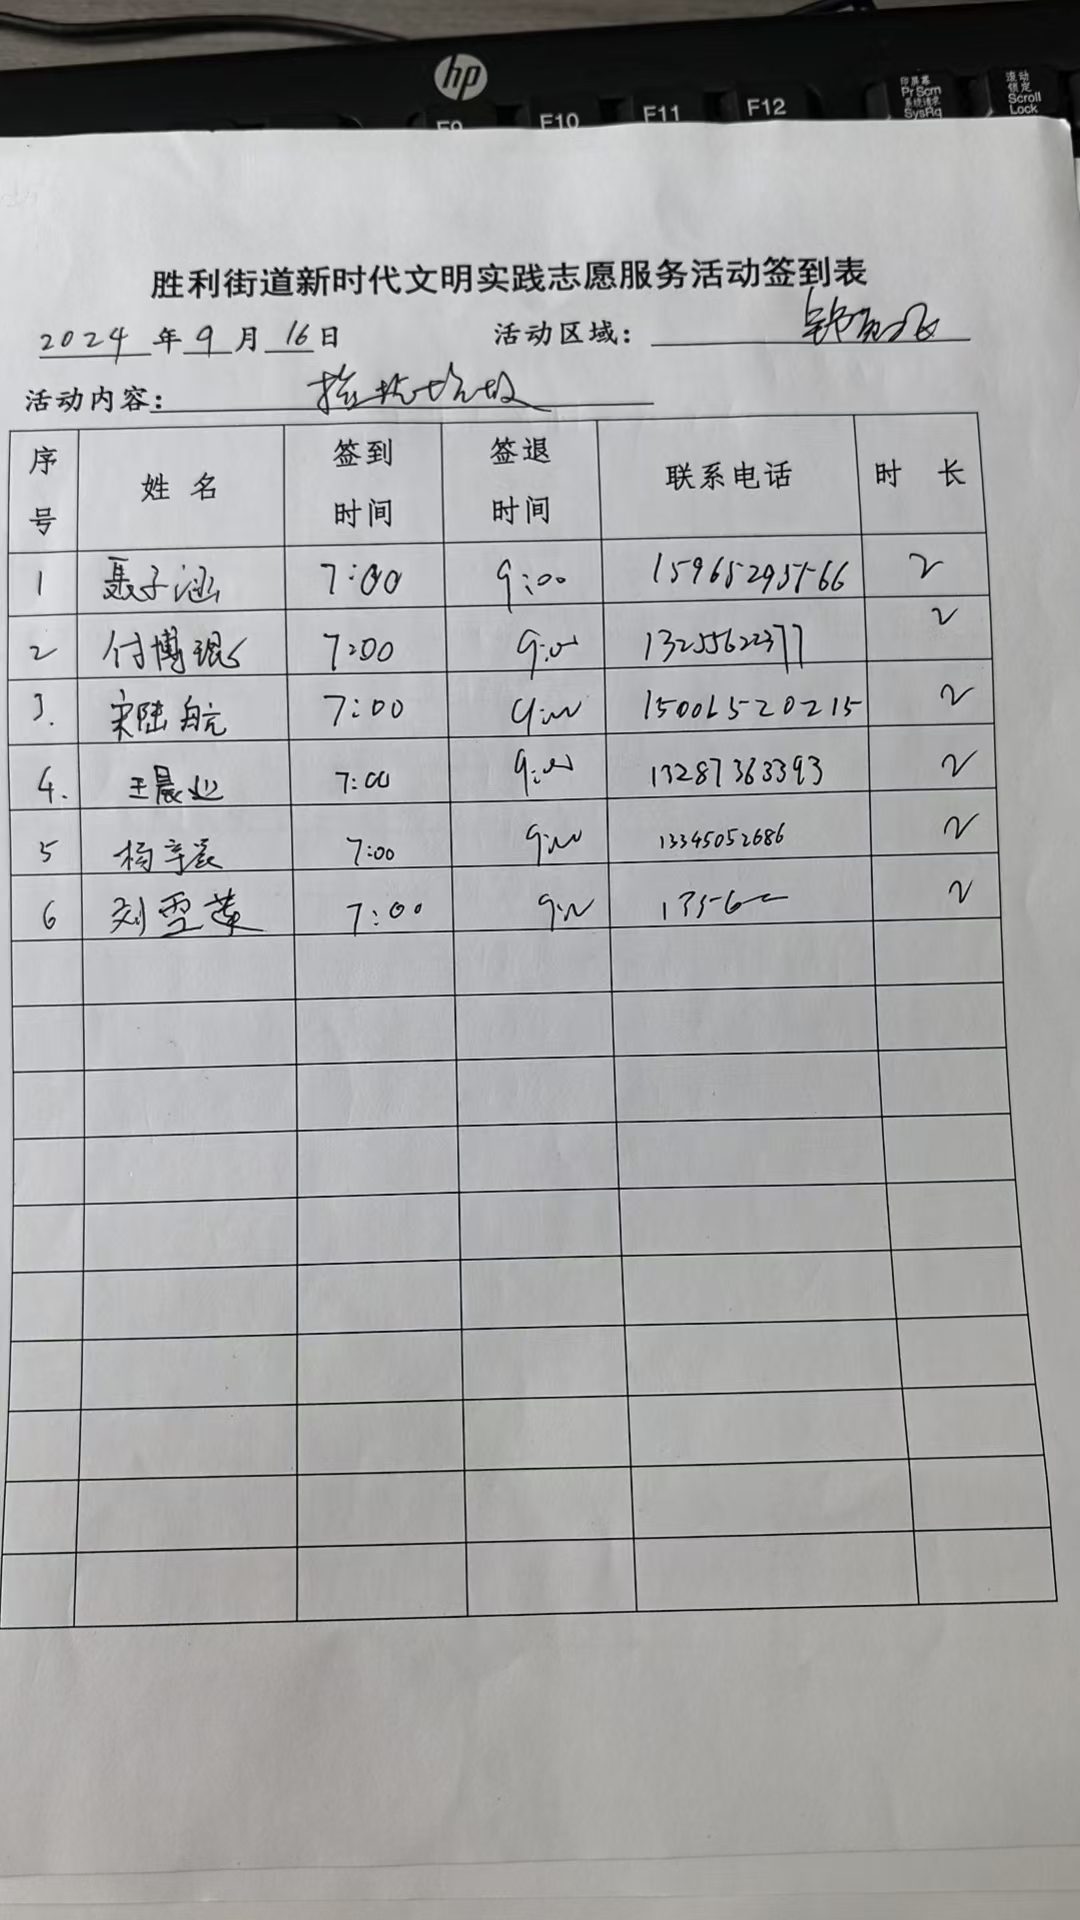 hp
F9 F10 F11 F12
印屏幕 Pr Scrn 系统请求 SysRq
滚动锁定 Scroll Lock
胜利街道新时代文明实践志愿服务活动签到表
2024年9月16日 活动区域:
活动内容: 捡拾垃圾
序号 姓名 签到时间 签退时间 联系电话 时 长
1 聂子涵 7:00 9:00 15965293566 2
2 付博琨 7:00 9:00 13255622377 2
3. 宋陆航 7:00 9:00 15006520215 2
4. 王晨 7:00 9:00 13287363393 2
5 杨辛宸 7:00 9:00 13345052686 2
6 刘雪莲 7:00 9:00 1356 2